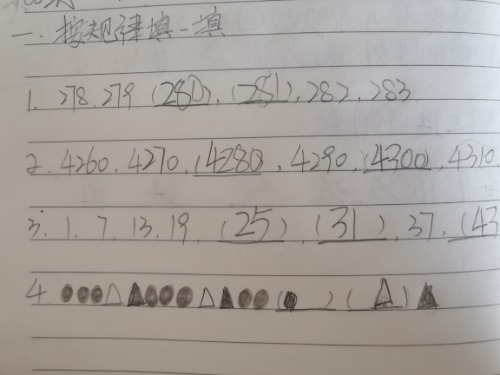 一、按规律填一填
1. 278、279 (280)、(281)、282、283
2. 4260、4270、(4280)、4290、(4300)、4310
3. 1、7、13、19、(25)、(31)、37、(43
4. ●●●△▲●●●△▲●●(●)(△)▲